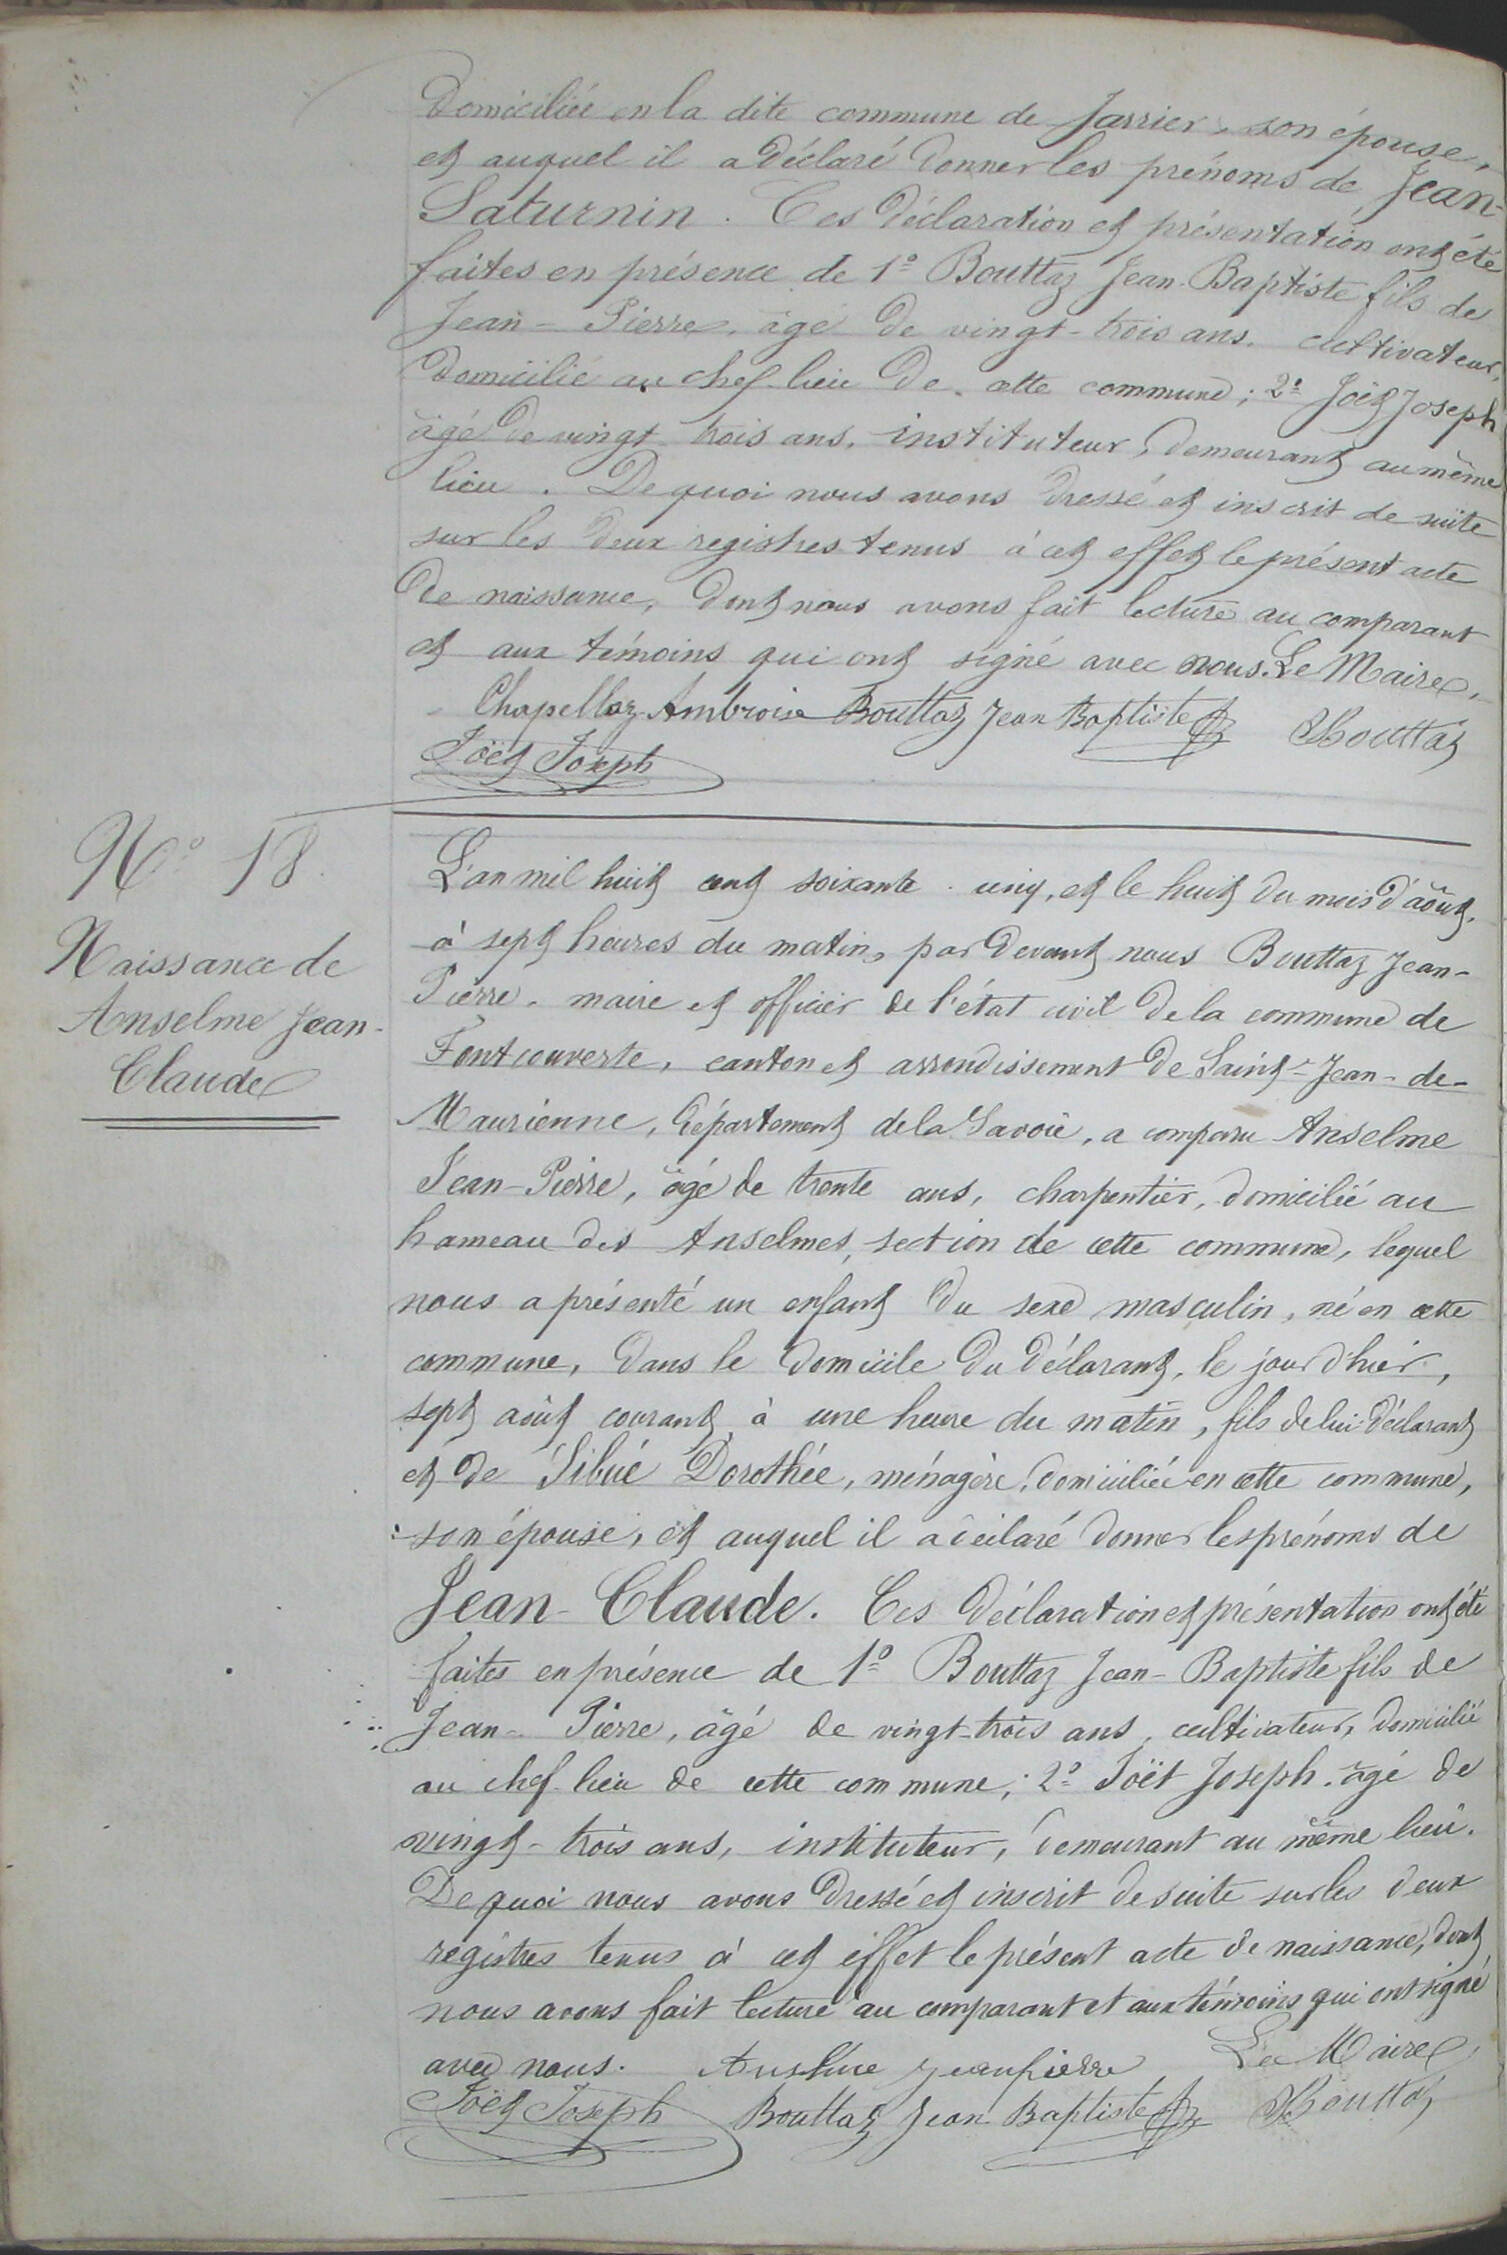 Domiciliée en la dite commune de Jarrier, son épouse,
et auquel il a déclaré donner les prénoms de Jean-
Saturnin. Ces déclaration et présentation ont été
faites en présence de 1º Bouttaz Jean-Baptiste fils de
Jean-Pierre, âgé de vingt-trois ans, cultivateur,
domicilié au chef-lieu de cette commune; 2º Joët Joseph
âgé de vingt trois ans, instituteur, demeurant au même
lieu. De quoi nous avons dressé et inscrit de suite
sur les deux registres tenus à cet effet le présent acte
de naissance, dont nous avons fait lecture au comparant
et aux témoins qui ont signé avec nous. Le Maire,
Chapellaz Ambroise Bouttaz Jean Baptiste Bouttaz
Joët Joseph
Nº 18.
Naissance de
Anselme Jean-
Claude
L'an mil huit cent soixante-cinq, et le huit du mois d'août,
à sept heures du matin, par devant nous Bouttaz Jean-
Pierre, maire et officier de l'état civil de la commune de
Fontcouverte, canton et arrondissement de Saint-Jean-de-
Maurienne, département de la Savoie, a comparu Anselme
Jean-Pierre, âgé de trente ans, charpentier, domicilié au
hameau des Anselmes, section de cette commune, lequel
nous a présenté un enfant du sexe masculin, né en cette
commune, dans le domicile du déclarant, le jour d'hier,
sept août courant, à une heure du matin, fils de lui déclarant
et de Sibué Dorothée, ménagère, domiciliée en cette commune,
son épouse, et auquel il a déclaré donner les prénoms de
Jean-Claude. Ces déclaration et présentation ont été
faites en présence de 1º Bouttaz Jean-Baptiste fils de
Jean-Pierre, âgé de vingt-trois ans, cultivateur, domicilié
au chef-lieu de cette commune; 2º Joët Joseph, âgé de
vingt-trois ans, instituteur, demeurant au même lieu.
De quoi nous avons dressé et inscrit de suite sur les deux
registres tenus à cet effet le présent acte de naissance, dont
nous avons fait lecture au comparant et aux témoins qui ont signé
avec nous. Anselme jeanpierre Le Maire,
Joët Joseph Bouttaz Jean Baptiste Bouttaz